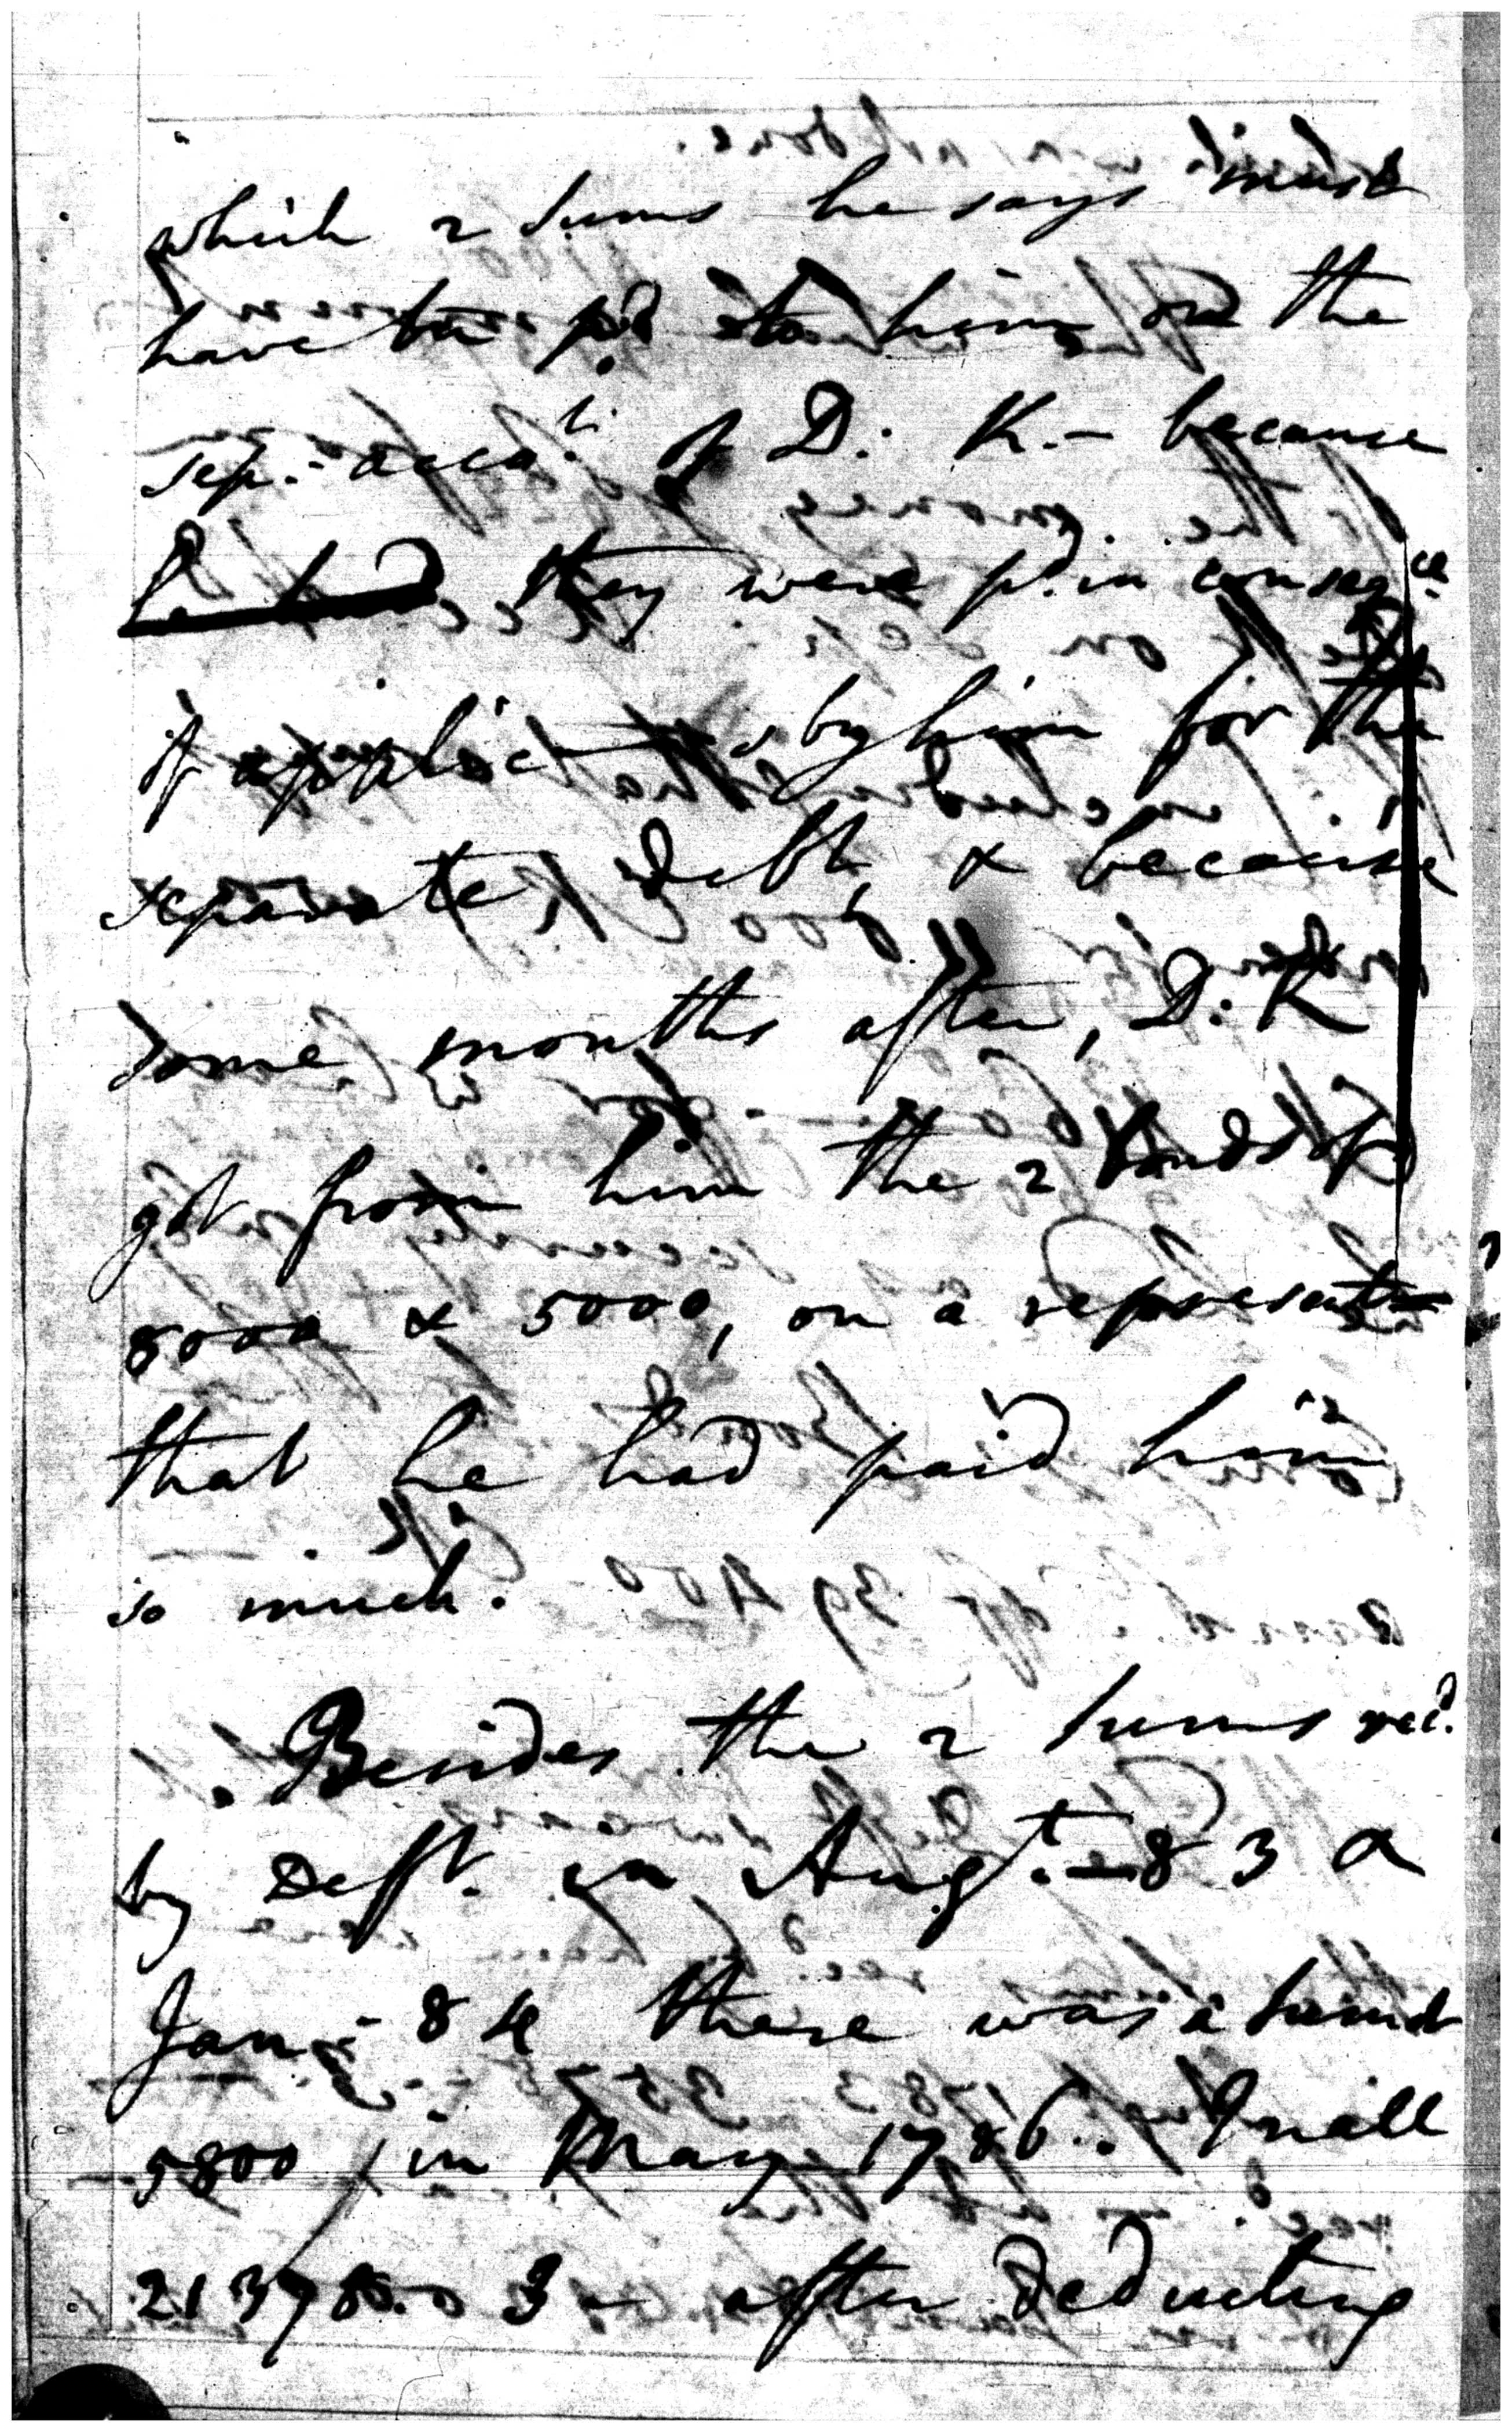 which 2 sums he says must
have been pd to him on the
sep.- acco.t of D: K.- because
he had they were pd. in conseq.ce
of applic by him for the
separate Debt, & because
some months after, D: K
got from him the 2 bonds of
8000 & 5000, on a represent
that he had paid him
so much.
Besides the 2 sums rec.d
by Deft. in Aug.t -83 &
Jany 84 there was a sum of
5800 in May 1786. In all
21378.0 3 - after Deducting